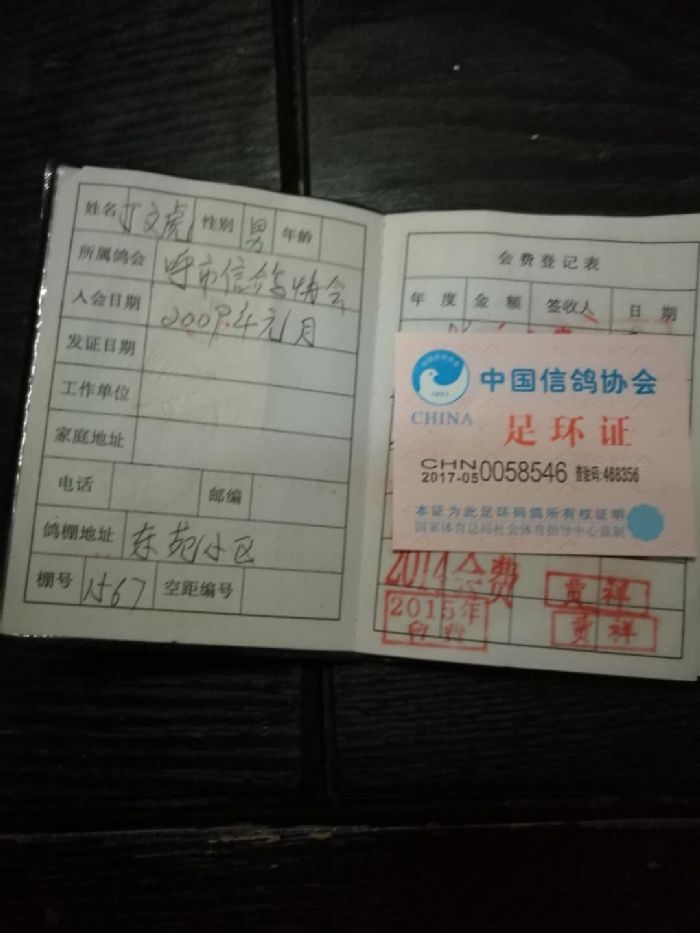 姓名 丁文虎 性别 男 年龄
所属鸽会 呼市信鸽协会
入会日期 2009年元月
发证日期
工作单位
家庭地址
电话 邮编
鸽棚地址 东苑小区
棚号 1567 空距编号
会费登记表
年度 金额 签收人 日期
中国信鸽协会
CHINA
足环证
CHN
2017-05 0058546 查验码:468356
本证为此足环码鸽所有权证明
国家体育总局社会体育指导中心监制
2014会费 贾祥
2015年 贾祥